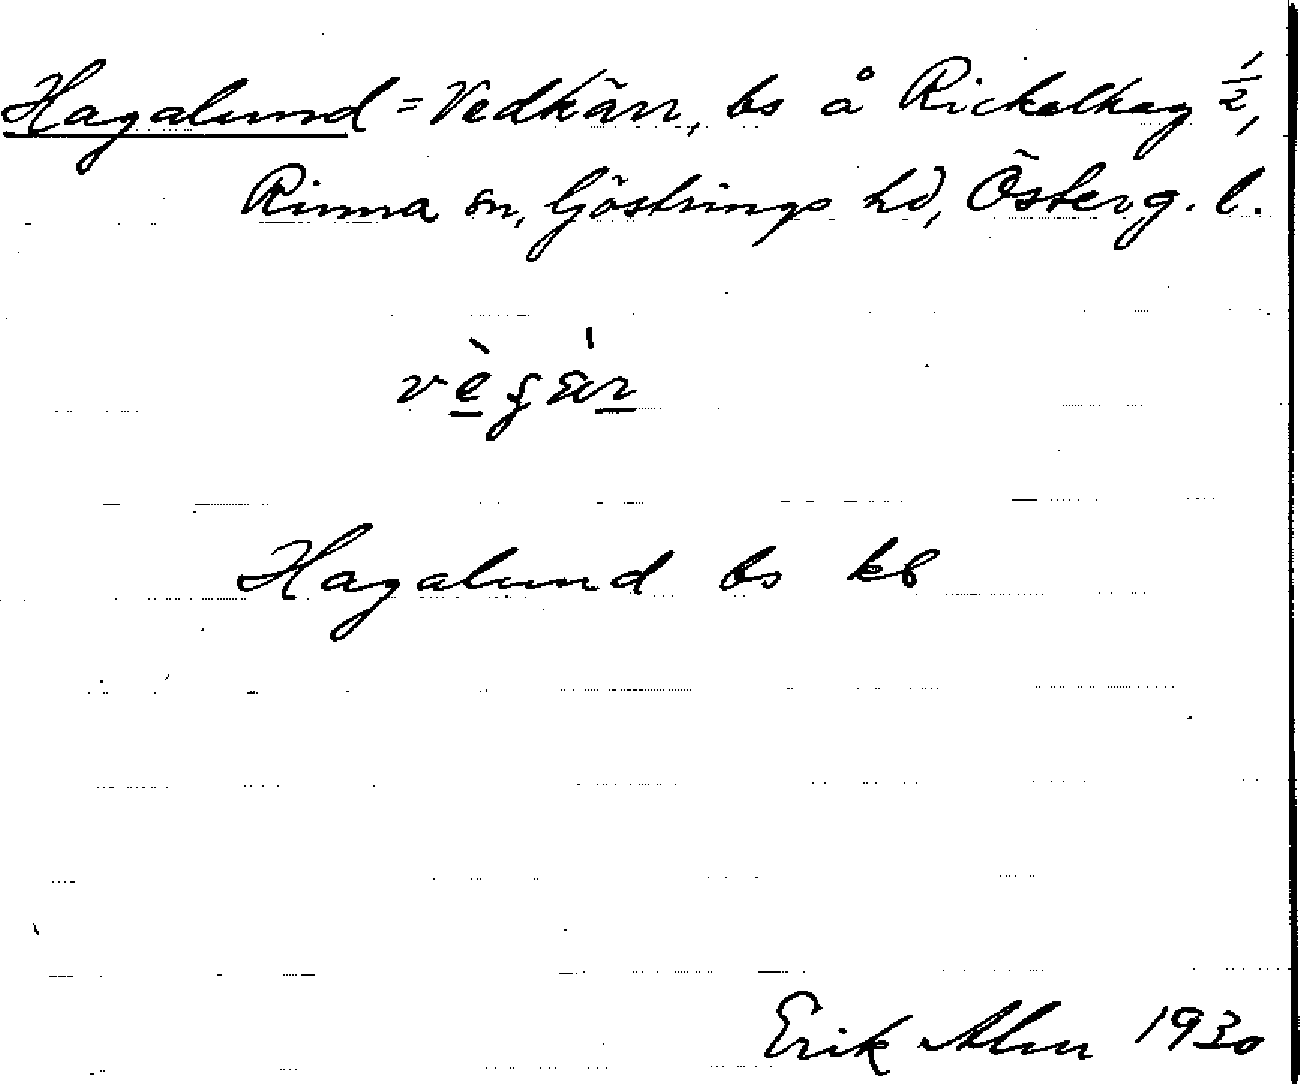 Hagalund = Vedkärr, bs å Rickelhag 1/2,
Rinna sn, Göstrings hd, Österg. l.
Hagalund bs kb
Erik Alm 1930